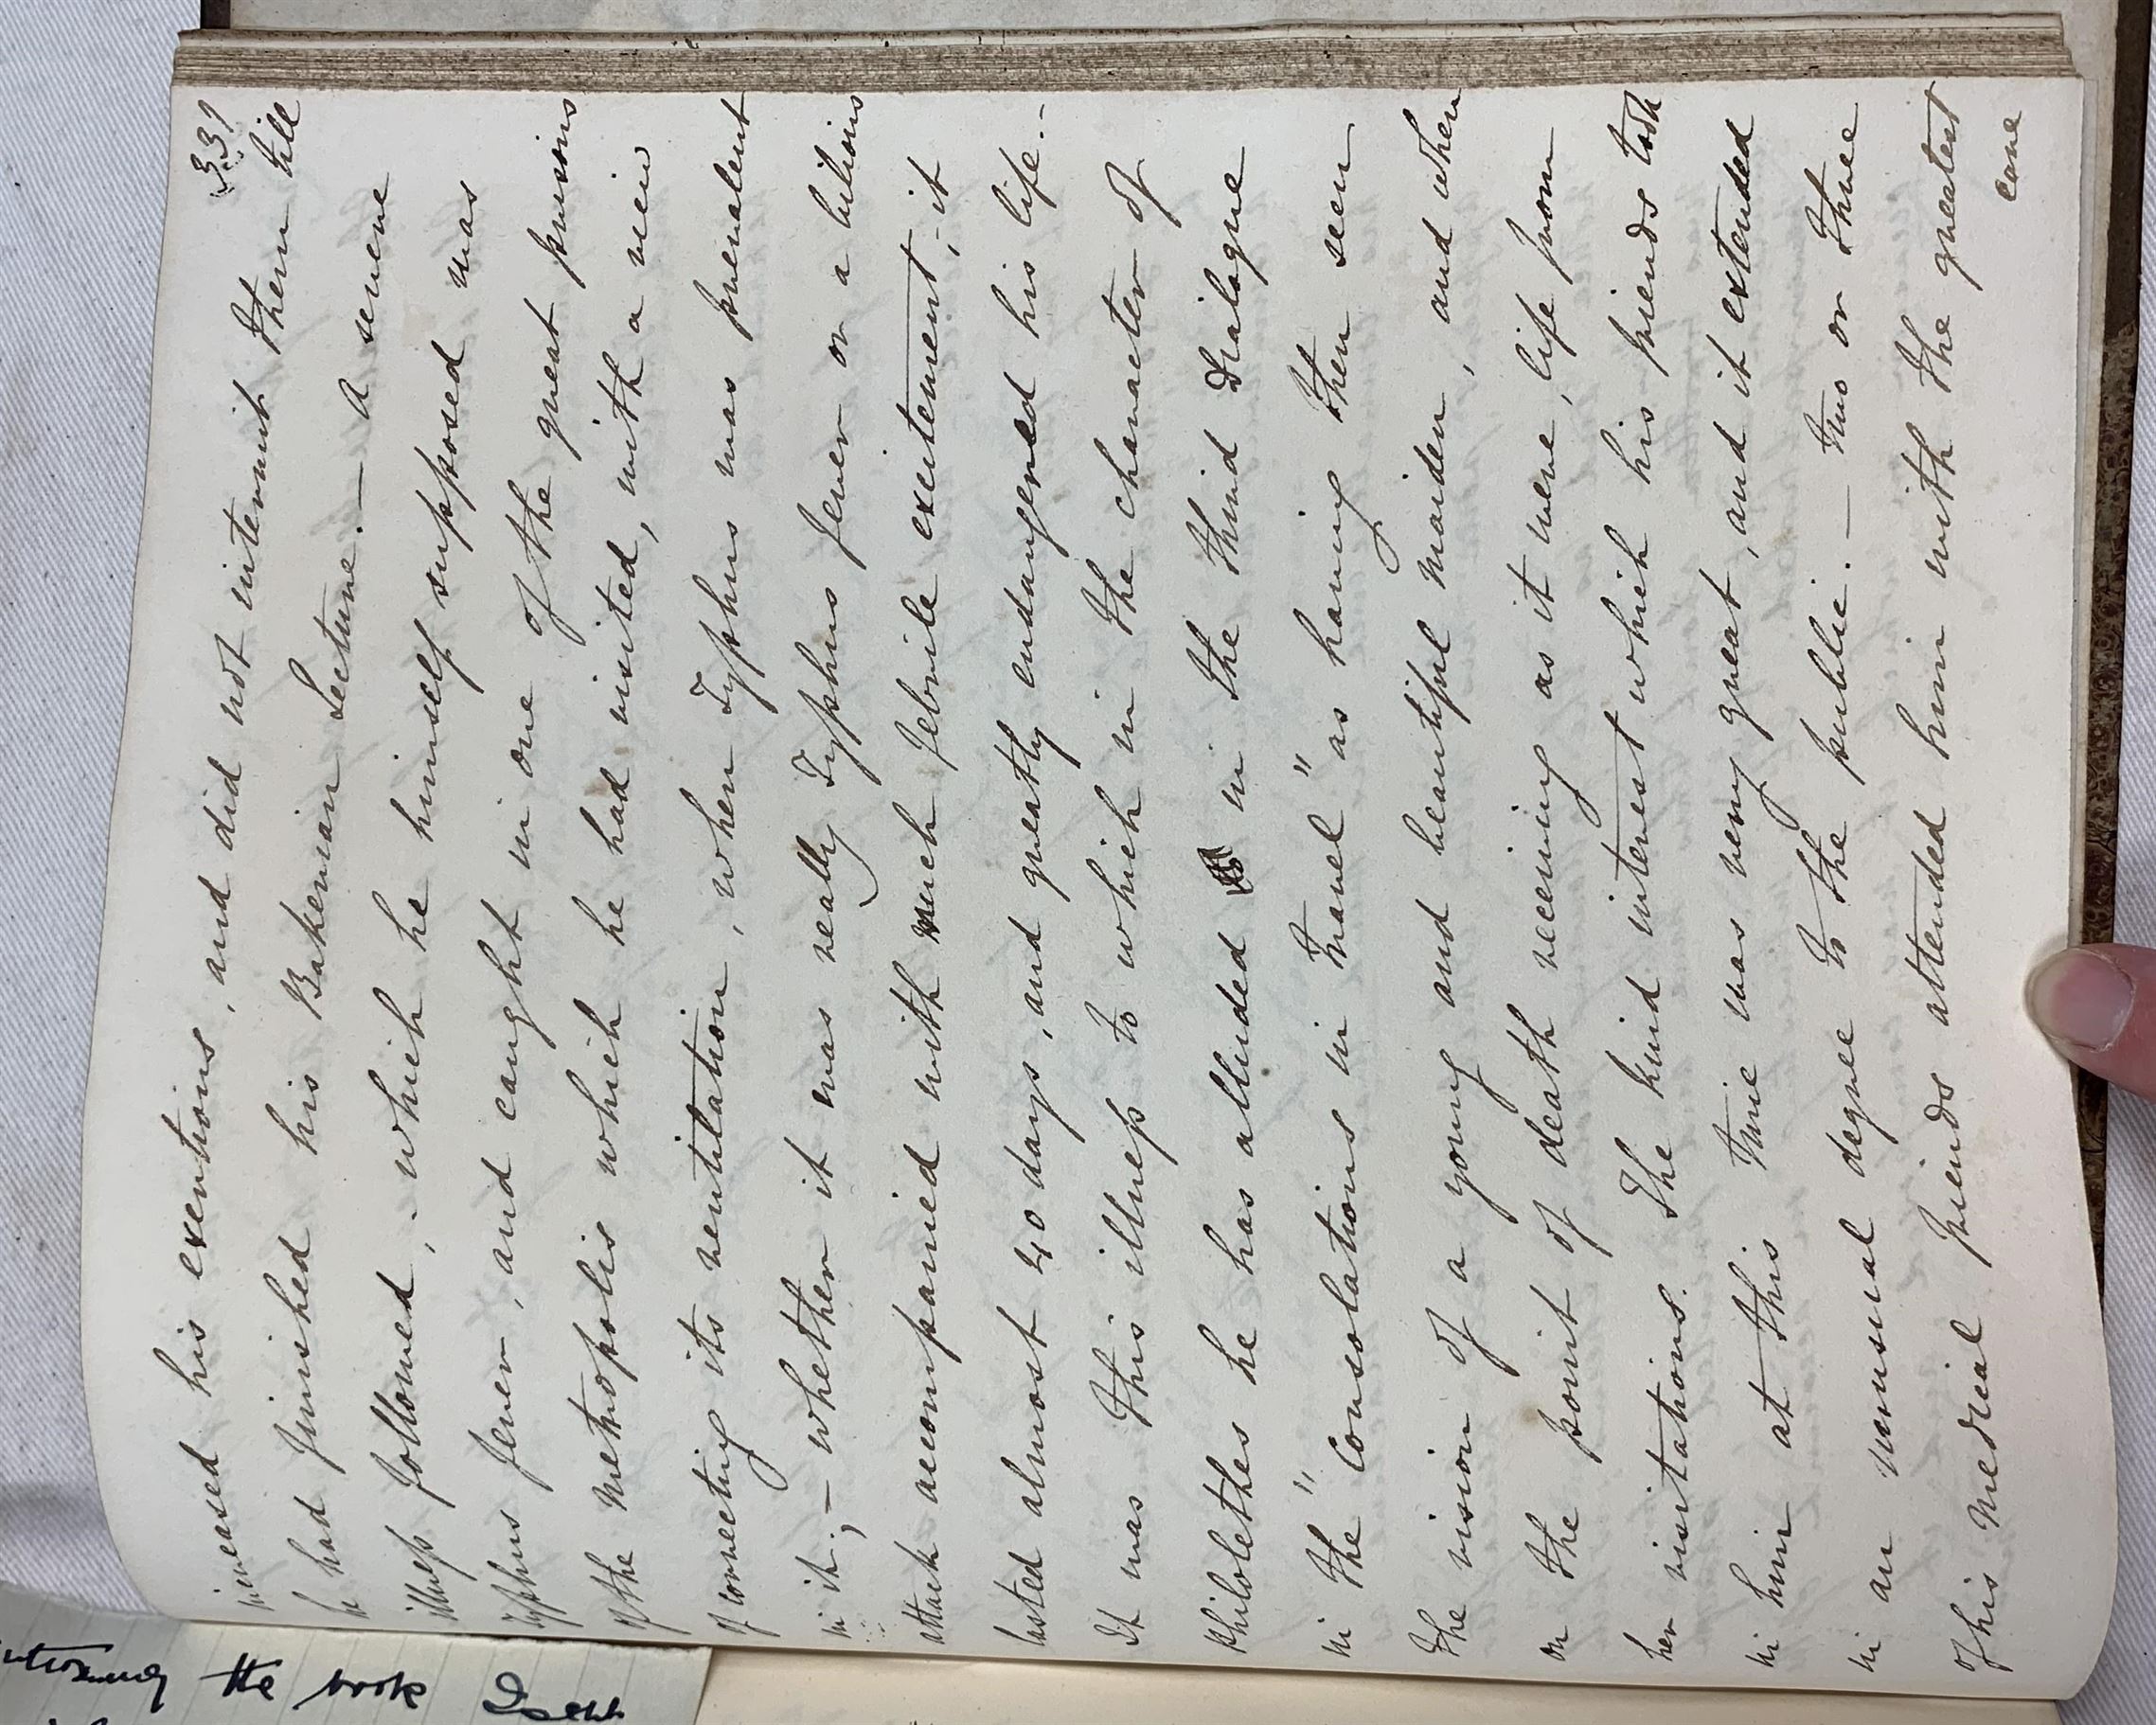 339
increased his exertions, and did not intermit them till
he had finished his Bakerian Lecture. — A severe
illness followed, - which he himself supposed was
Typhus fever, and caught in one of the great prisons
of the Metropolis which he had visited, with a view
of correcting its ventilation, when Typhus was prevalent
in it; — whether it was really Typhus fever or a bilious
attack accompanied with much febrile excitement, - it
lasted almost 40 days, and greatly endangered his life. -
It was this illness to which in the character of
Philolethes he has alluded in the third Dialogue
in the "Consolations in Travel" as having then seen
the vision of a young and beautiful maiden, and when
on the point of death receiving as it were, life from
her visitations. The kind interest which his friends took
in him at this time was very great, and it extended
in an unusual degree to the public. — Two or three
of his Medical friends attended him with the greatest
care
the book